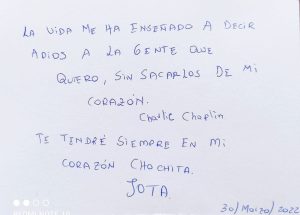 LA VIDA ME HA ENSEÑADO A DECIR
ADIOS A LA GENTE QUE
QUIERO, SIN SACARLOS DE MI
CORAZÓN.
Charlie Chaplin
TE TENDRÉ SIEMPRE EN MI
CORAZÓN CHOCHITA.
JOTA.
30/Marzo/2022